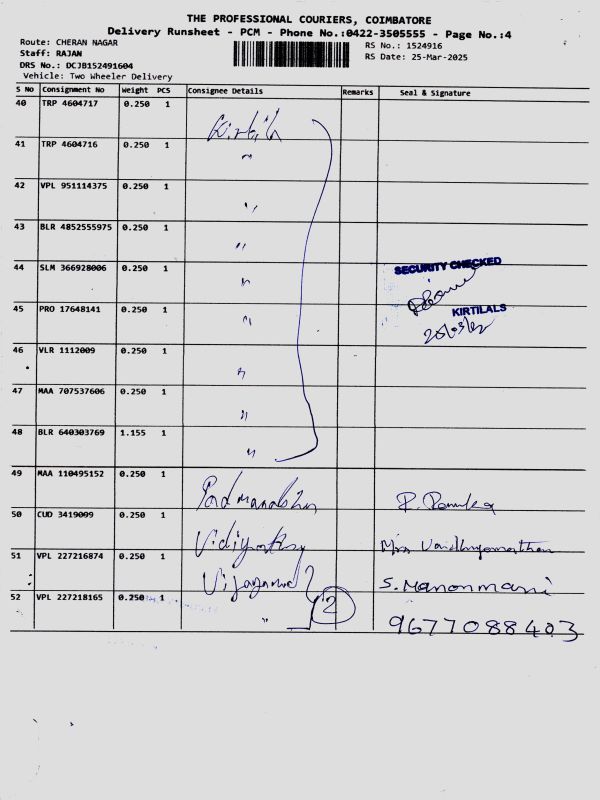 THE PROFESSIONAL COURIERS, COIMBATORE
Delivery Runsheet - PCM - Phone No.:0422-3505555 - Page No.:4
Route: CHERAN NAGAR
RS No.: 1524916
Staff: RAJAN
RS Date: 25-Mar-2025
DRS No.: DCJB152491604
Vehicle: Two Wheeler Delivery
S No Consignment No Weight PCS Consignee Details Remarks Seal & Signature
40 TRP 4604717 0.250 1 Kirtilals
41 TRP 4604716 0.250 1 "
42 VPL 951114375 0.250 1 "
43 BLR 4852555975 0.250 1 "
44 SLM 366928006 0.250 1 " SECURITY CHECKED
45 PRO 17648141 0.250 1 " KIRTILALS
46 VLR 1112009 0.250 1 "
47 MAA 707537606 0.250 1 "
48 BLR 640303769 1.155 1 "
49 MAA 110495152 0.250 1 Padmanabhan R. Renuka
50 CUD 3419099 0.250 1
51 VPL 227216874 0.250 1 S. Manonmani
52 VPL 227218165 0.250 1 " 2 9677088403